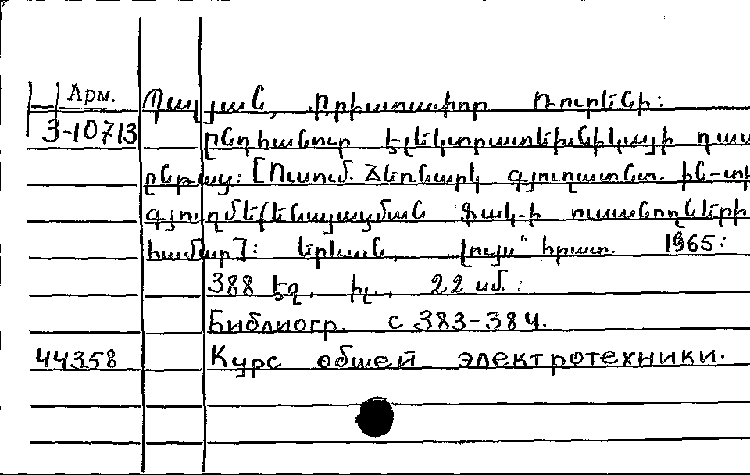 Арм.
Պալյան, Քրիստափոր Ռուբենի:
3-10713
Ընդհանուր էլեկտրատեխնիկայի դաս
ընթաց: [Ուսում. ձեռնարկ գյուղատնտ. ին-տի
գյուղմեքենայացման ֆակ-ի ուսանողների
համար]: Երևան, „Լույս" հրատ. 1965:
388 էջ, իլ., 22 սմ.:
Библиогр. с 383-384.
44358 Курс общей электротехники.